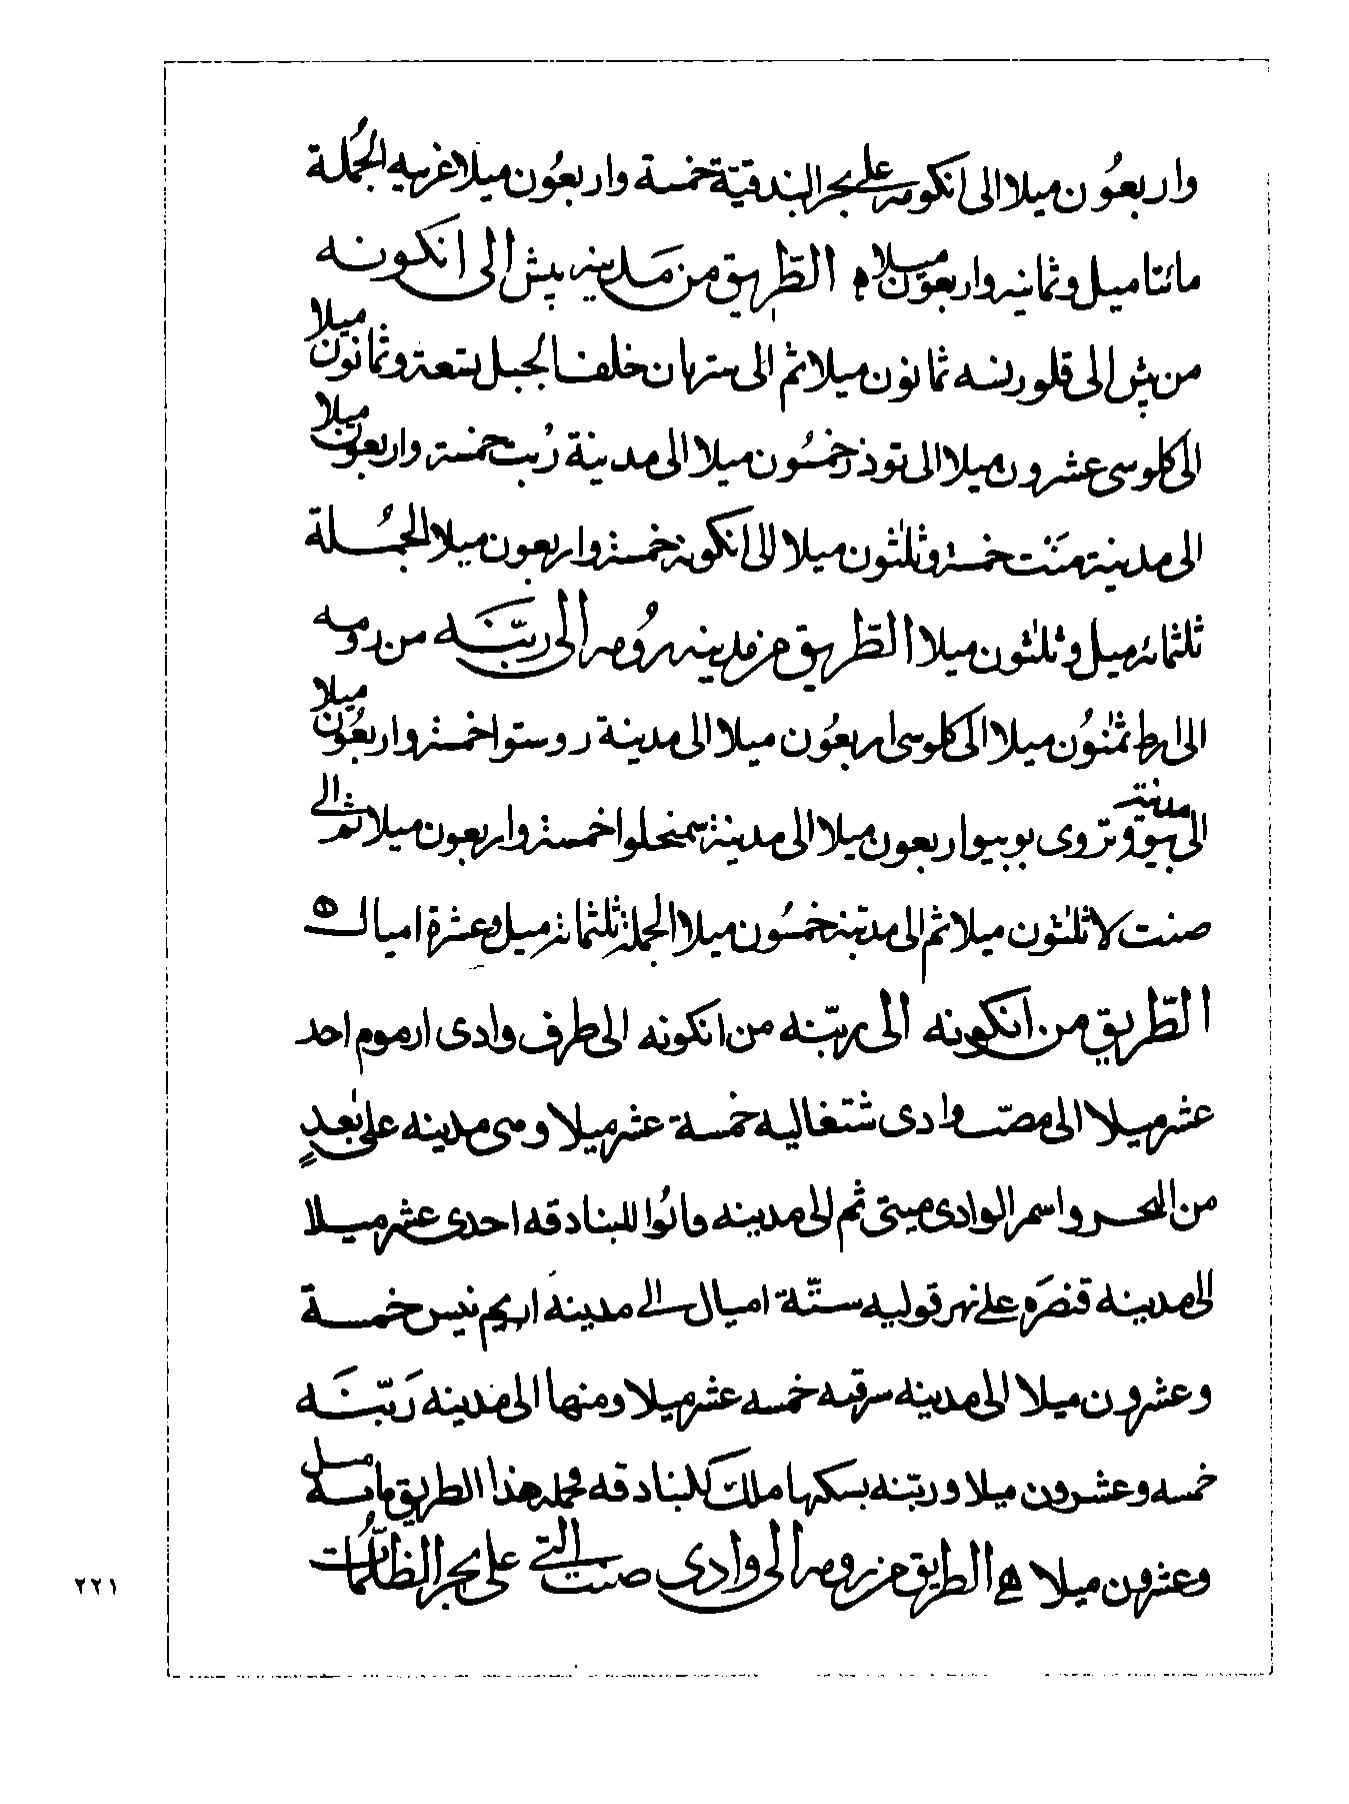 واربعُون ميلا الى انكونه على بحر البندقيّة خمسة واربعُون ميلا غربيه الجُملة
مائتا ميل وثمانيه واربعون ميلا ه الطّريق من مَدينه بيش الى انكونه
من بيش الى قلورنسه ثمانون ميلا ثم الى خلف الجبل تسعة وثمانون ميلا
الى كلوسى عشرون ميلا الى توذر خمسُون ميلا الى مدينة رُبت خمسة واربعون ميلا
الى مدينة مَنْت خمسة وثلٰثون ميلا الى انكونه خمسة واربعون ميلا الجُملة
ثلثمائه ميل وثلٰثون ميلا الطّريق من مدينه رُومه الى ربّنَه من رومه
الى ثمٰنُون ميلا الى كلوسى اربعُون ميلا الى مدينة روستوا خمسة واربعُون ميلا
الى مدينة وتروى بوبيو اربعون ميلا الى مدينة سمنحلوا خمسة واربعون ميلا ثم الى
صنت لا ثلٰثون ميلا ثم الى خمسُون ميلا الجملة ثلثمائة ميل وعشرة اميال ه
الطّريق من انكونه الى ربّنه من انكونه الى طرف وادى ارموم احد
عشر ميلا الى مصبّ وادى شنتغاليه خمسة عشر ميلا وهى مدينه على بُعدٍ
من البحر واسم الوادى ميتى ثم الى مدينه فانُوا للبنادقه احدى عشر ميلا
الى مدينه قنصَره على نهر قوليه ستّة اميال الى مدينه اريم نيس خمسة
وعشرون ميلا الى مدينه سرقيه خمسه عشر ميلا ومنها الى مدينه رَبّنَه
خمسه وعشرون ميلا وربّنه يسكنها ملك للبنادقه فجمله هذا الطريق مايه ميل
وعشرون ميلا ه الطريق من رومه الى وادى صنت التى على بحر الظلُمات
٢٢١